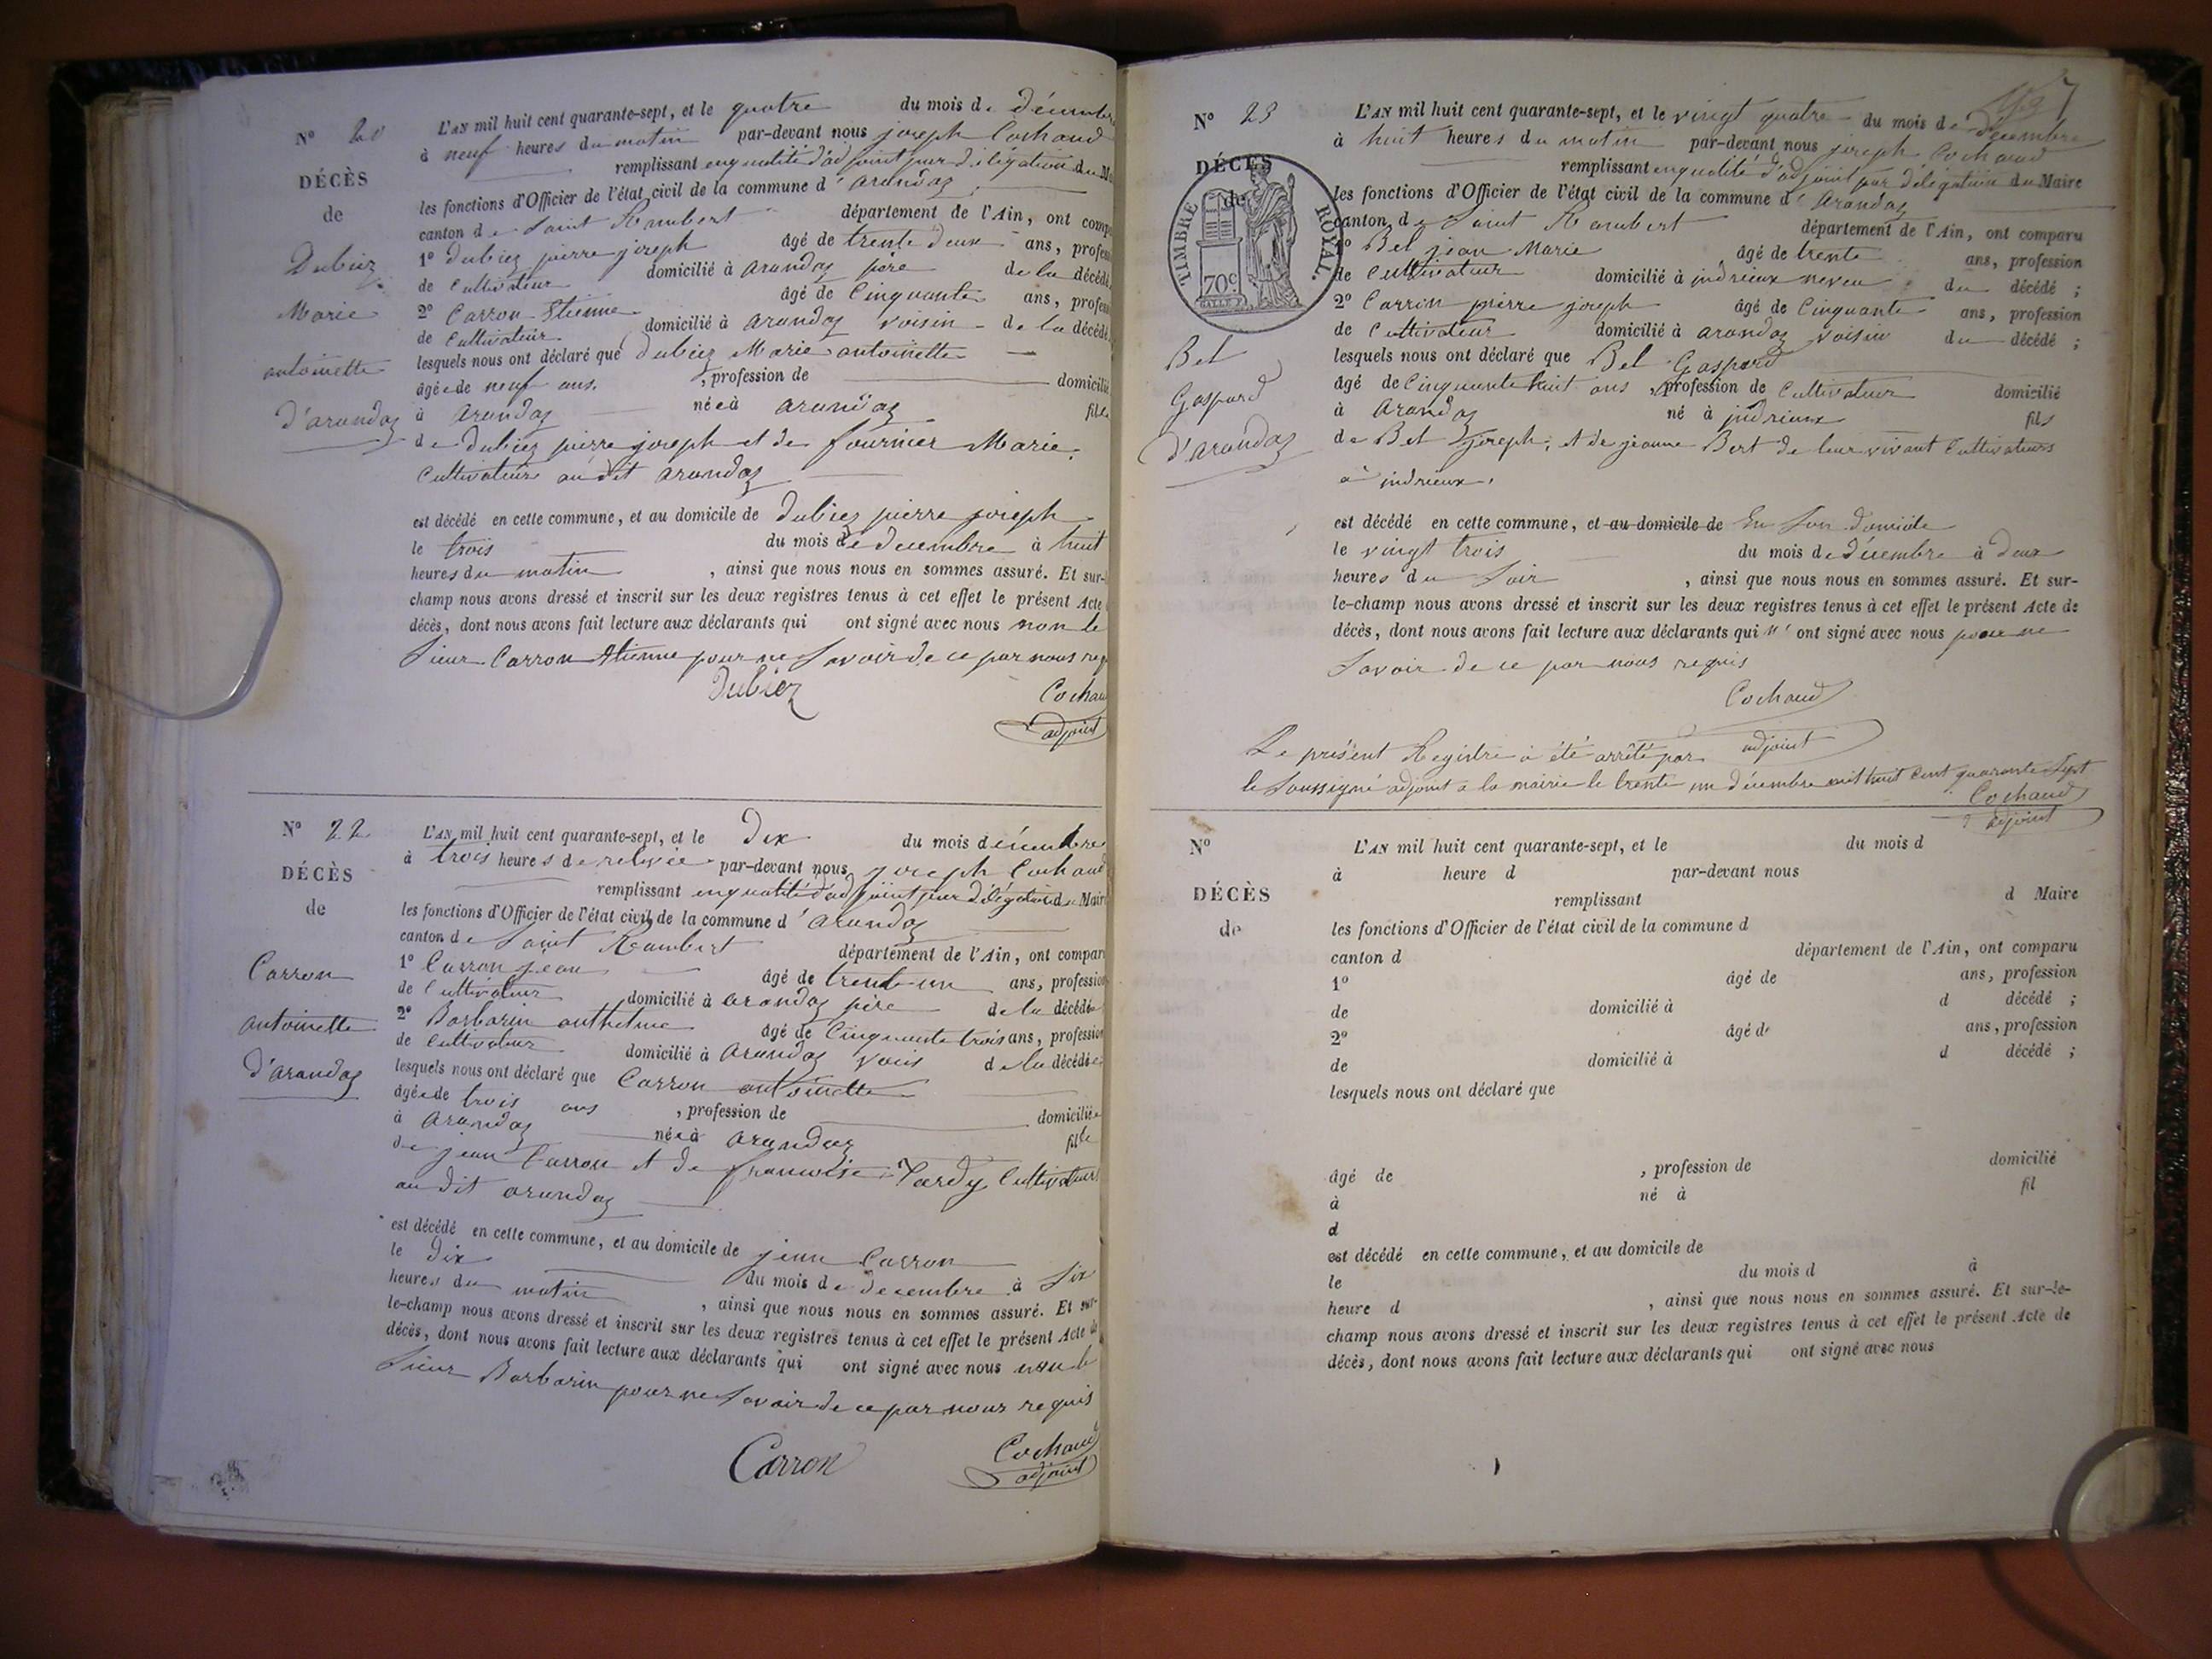 N° 21
DÉCÈS
de
Dubiez
Marie
antoinette
d'arandas
L'AN mil huit cent quarante-sept, et le quatre du mois de décembre
à neuf heures du matin par-devant nous joseph Cochaud
remplissant en qualité d'adjoint par délégation du
les fonctions d'Officier de l'état civil de la commune d'arandas
canton de Saint Rambert département de l'Ain, ont comp
1° Dubiez pierre joseph âgé de trente deux ans, profess
de Cultivateur domicilié à arandas père de la décédé
2° Carron Etienne âgé de Cinquante ans, profess
de Cultivateur domicilié à arandas voisin de la décédé
lesquels nous ont déclaré que Dubiez Marie antoinette
âgée de neuf ans, profession de domicilié
à arandas née à arandas fille
de Dubiez pierre joseph et de fournier Marie,
Cultivateurs au dit arandas
est décédé en cette commune, et au domicile de Dubiez pierre joseph
le trois du mois de decembre à huit
heures du matin, ainsi que nous nous en sommes assuré. Et sur-
champ nous avons dressé et inscrit sur les deux registres tenus à cet effet le présent Acte
décès, dont nous avons fait lecture aux déclarants qui ont signé avec nous non le
Sieur Carron Etienne pour ne Savoir de ce par nous req
Dubiez Cochaud
adjoint
N° 22
DÉCÈS
de
Carron
antoinette
d'arandas
L'AN mil huit cent quarante-sept, et le Dix du mois décembre
à trois heures de relevée par-devant nous joseph Cochaud
remplissant en qualité d'adjoint par délégation du Maire
les fonctions d'Officier de l'état civil de la commune d'arandas
canton de Saint Rambert département de l'Ain, ont compar
1° Carron jean âgé de trente un ans, profession
de Cultivateur domicilié à arandas père de la décédée
2° Barbarin anthelme âgé de Cinquante trois ans, profession
de Cultivateur domicilié à arandas vois de la décédée
lesquels nous ont déclaré que Carron antoinette
âgée de trois ans, profession de domiciliée
à arandas née à arandas fille
de jean Carron et de francoise Tardy Cultivateurs
au dit arandas
est décédé en cette commune, et au domicile de jean Carron
le Dix du mois de decembre à Six
heures du matin, ainsi que nous nous en sommes assuré. Et sur-
le-champ nous avons dressé et inscrit sur les deux registres tenus à cet effet le présent Acte de
décès, dont nous avons fait lecture aux déclarants qui ont signé avec nous non le
Sieur Barbarin pour ne Savoir de ce par nous requis
Carron Cochaud
adjoint
N° 23
DÉCÈS
de
TIMBRE ROYAL.
70c
Bel
Gaspard
d'arandas
L'AN mil huit cent quarante-sept, et le vingt quatre du mois de décembre
à huit heures du matin par-devant nous joseph Cochaud
remplissant en qualité d'adjoint par délégation du Maire
les fonctions d'Officier de l'état civil de la commune d'arandas
canton de Saint Rambert département de l'Ain, ont comparu
1° Bel jean Marie âgé de trente ans, profession
de Cultivateur domicilié à indrieux neveu du décédé ;
2° Carron pierre joseph âgé de Cinquante ans, profession
de Cultivateur domicilié à arandas voisin du décédé ;
lesquels nous ont déclaré que Bel Gaspard
âgé de Cinquante huit ans, profession de Cultivateur domicilié
à arandas né à indrieux fils
de Bel joseph, et de jeanne Bert de leur vivant Cultivateurs
à indrieux,
est décédé en cette commune, et au domicile de En Son Domicile
le vingt trois du mois de décembre à deux
heures du Soir, ainsi que nous nous en sommes assuré. Et sur-
le-champ nous avons dressé et inscrit sur les deux registres tenus à cet effet le présent Acte de
décès, dont nous avons fait lecture aux déclarants qui n'ont signé avec nous pour ne
Savoir de ce par nous requis
Cochaud
adjoint
Le présent Registre a été arrêté par
le Soussigné adjoint a la mairie le trente un décembre mil huit Cent quarante Sept
Cochaud
adjoint
N°
DÉCÈS
de
L'AN mil huit cent quarante-sept, et le du mois d
à heure d par-devant nous
remplissant d Maire
les fonctions d'Officier de l'état civil de la commune d
canton d département de l'Ain, ont comparu
1° âgé de ans, profession
de domicilié à d décédé ;
2° âgé de ans, profession
de domicilié à d décédé ;
lesquels nous ont déclaré que
âgé de , profession de domicilié
à né à fil
d
est décédé en cette commune, et au domicile de
le du mois d à
heure d , ainsi que nous nous en sommes assuré. Et sur-le-
champ nous avons dressé et inscrit sur les deux registres tenus à cet effet le présent Acte de
décès, dont nous avons fait lecture aux déclarants qui ont signé avec nous